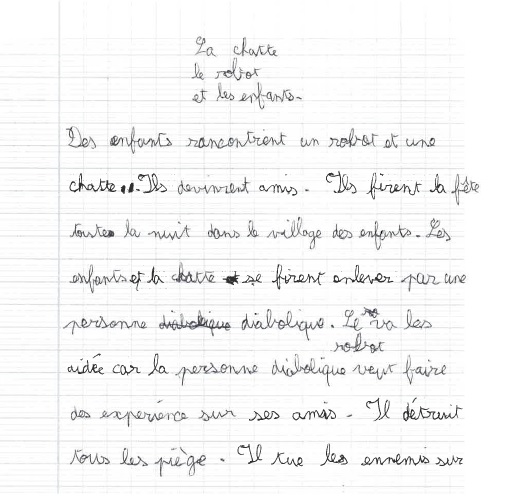 La chatte
le robot
et les enfants.
Des enfants rancontrent un robot et une
chatte. Ils devinrent amis. Ils firent la fête
toute la nuit dans le village des enfants. Les
enfants et la chatte se firent enlever par une
personne diabolique diabolique. Le va les
robot
aidée car la personne diabolique veut faire
des expérience sur ses amis. Il détruit
tous les piège. Il tue les ennemis sur